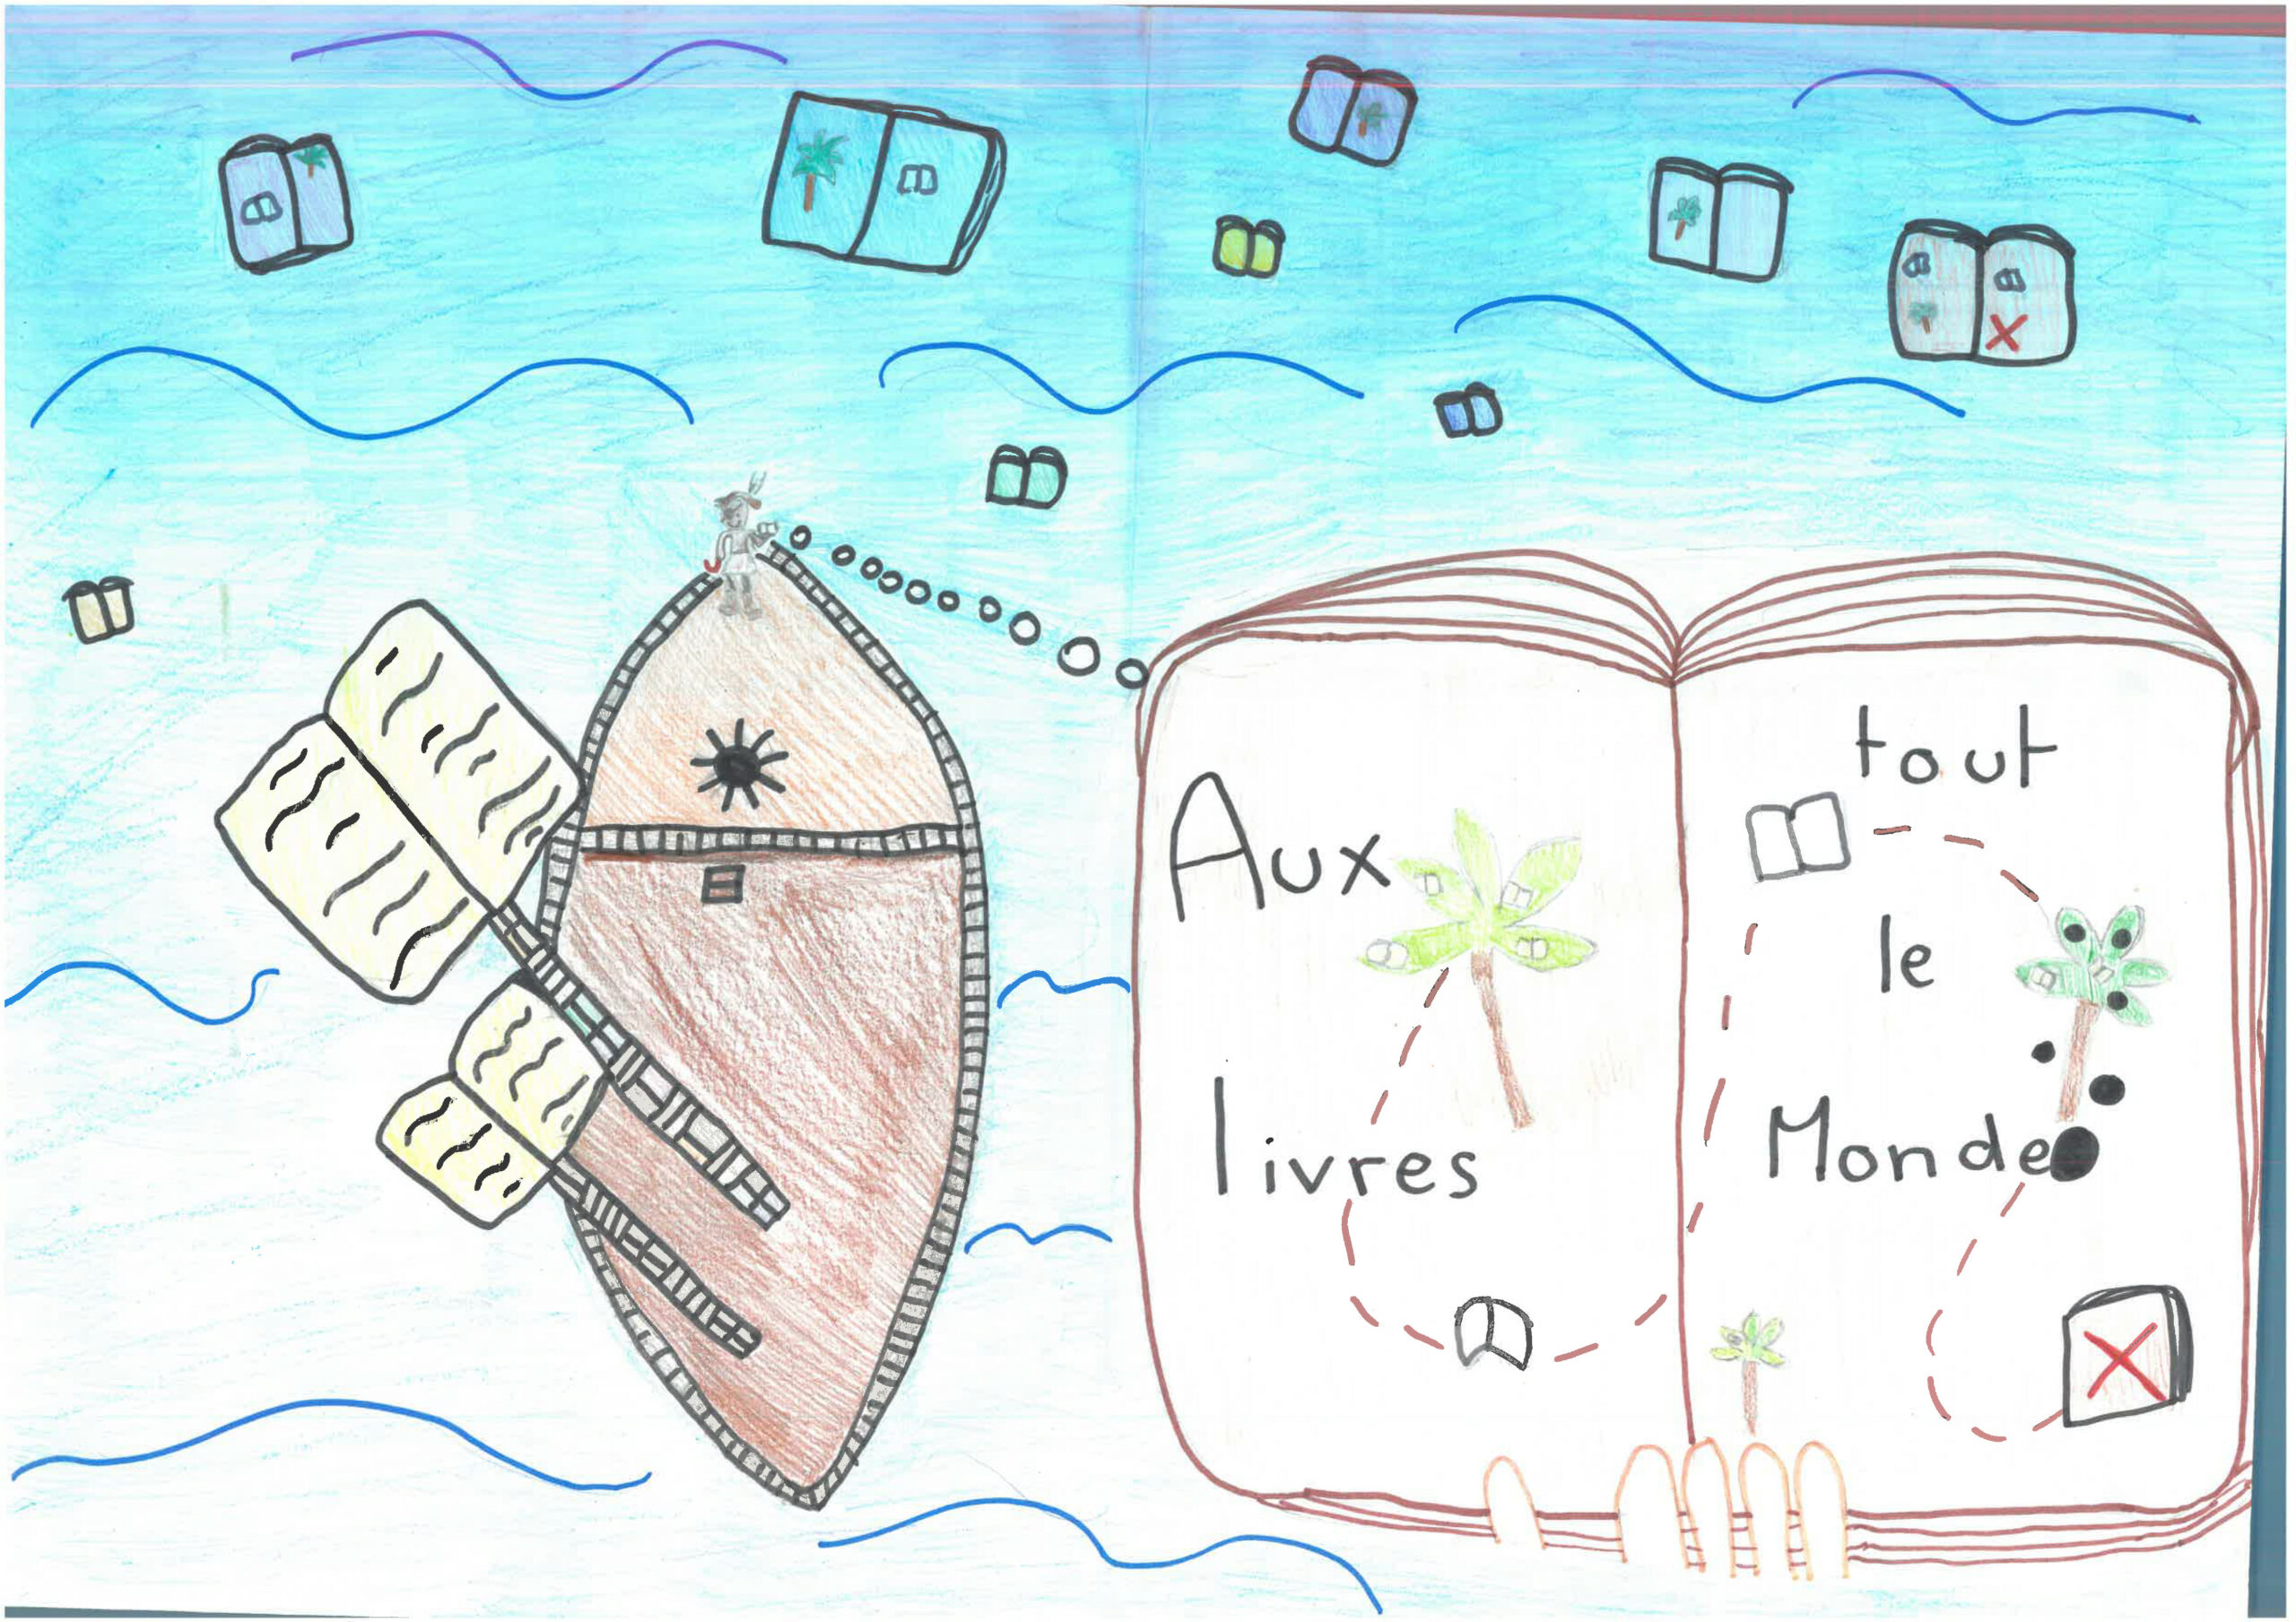 Aux
livres
tout
le
Monde